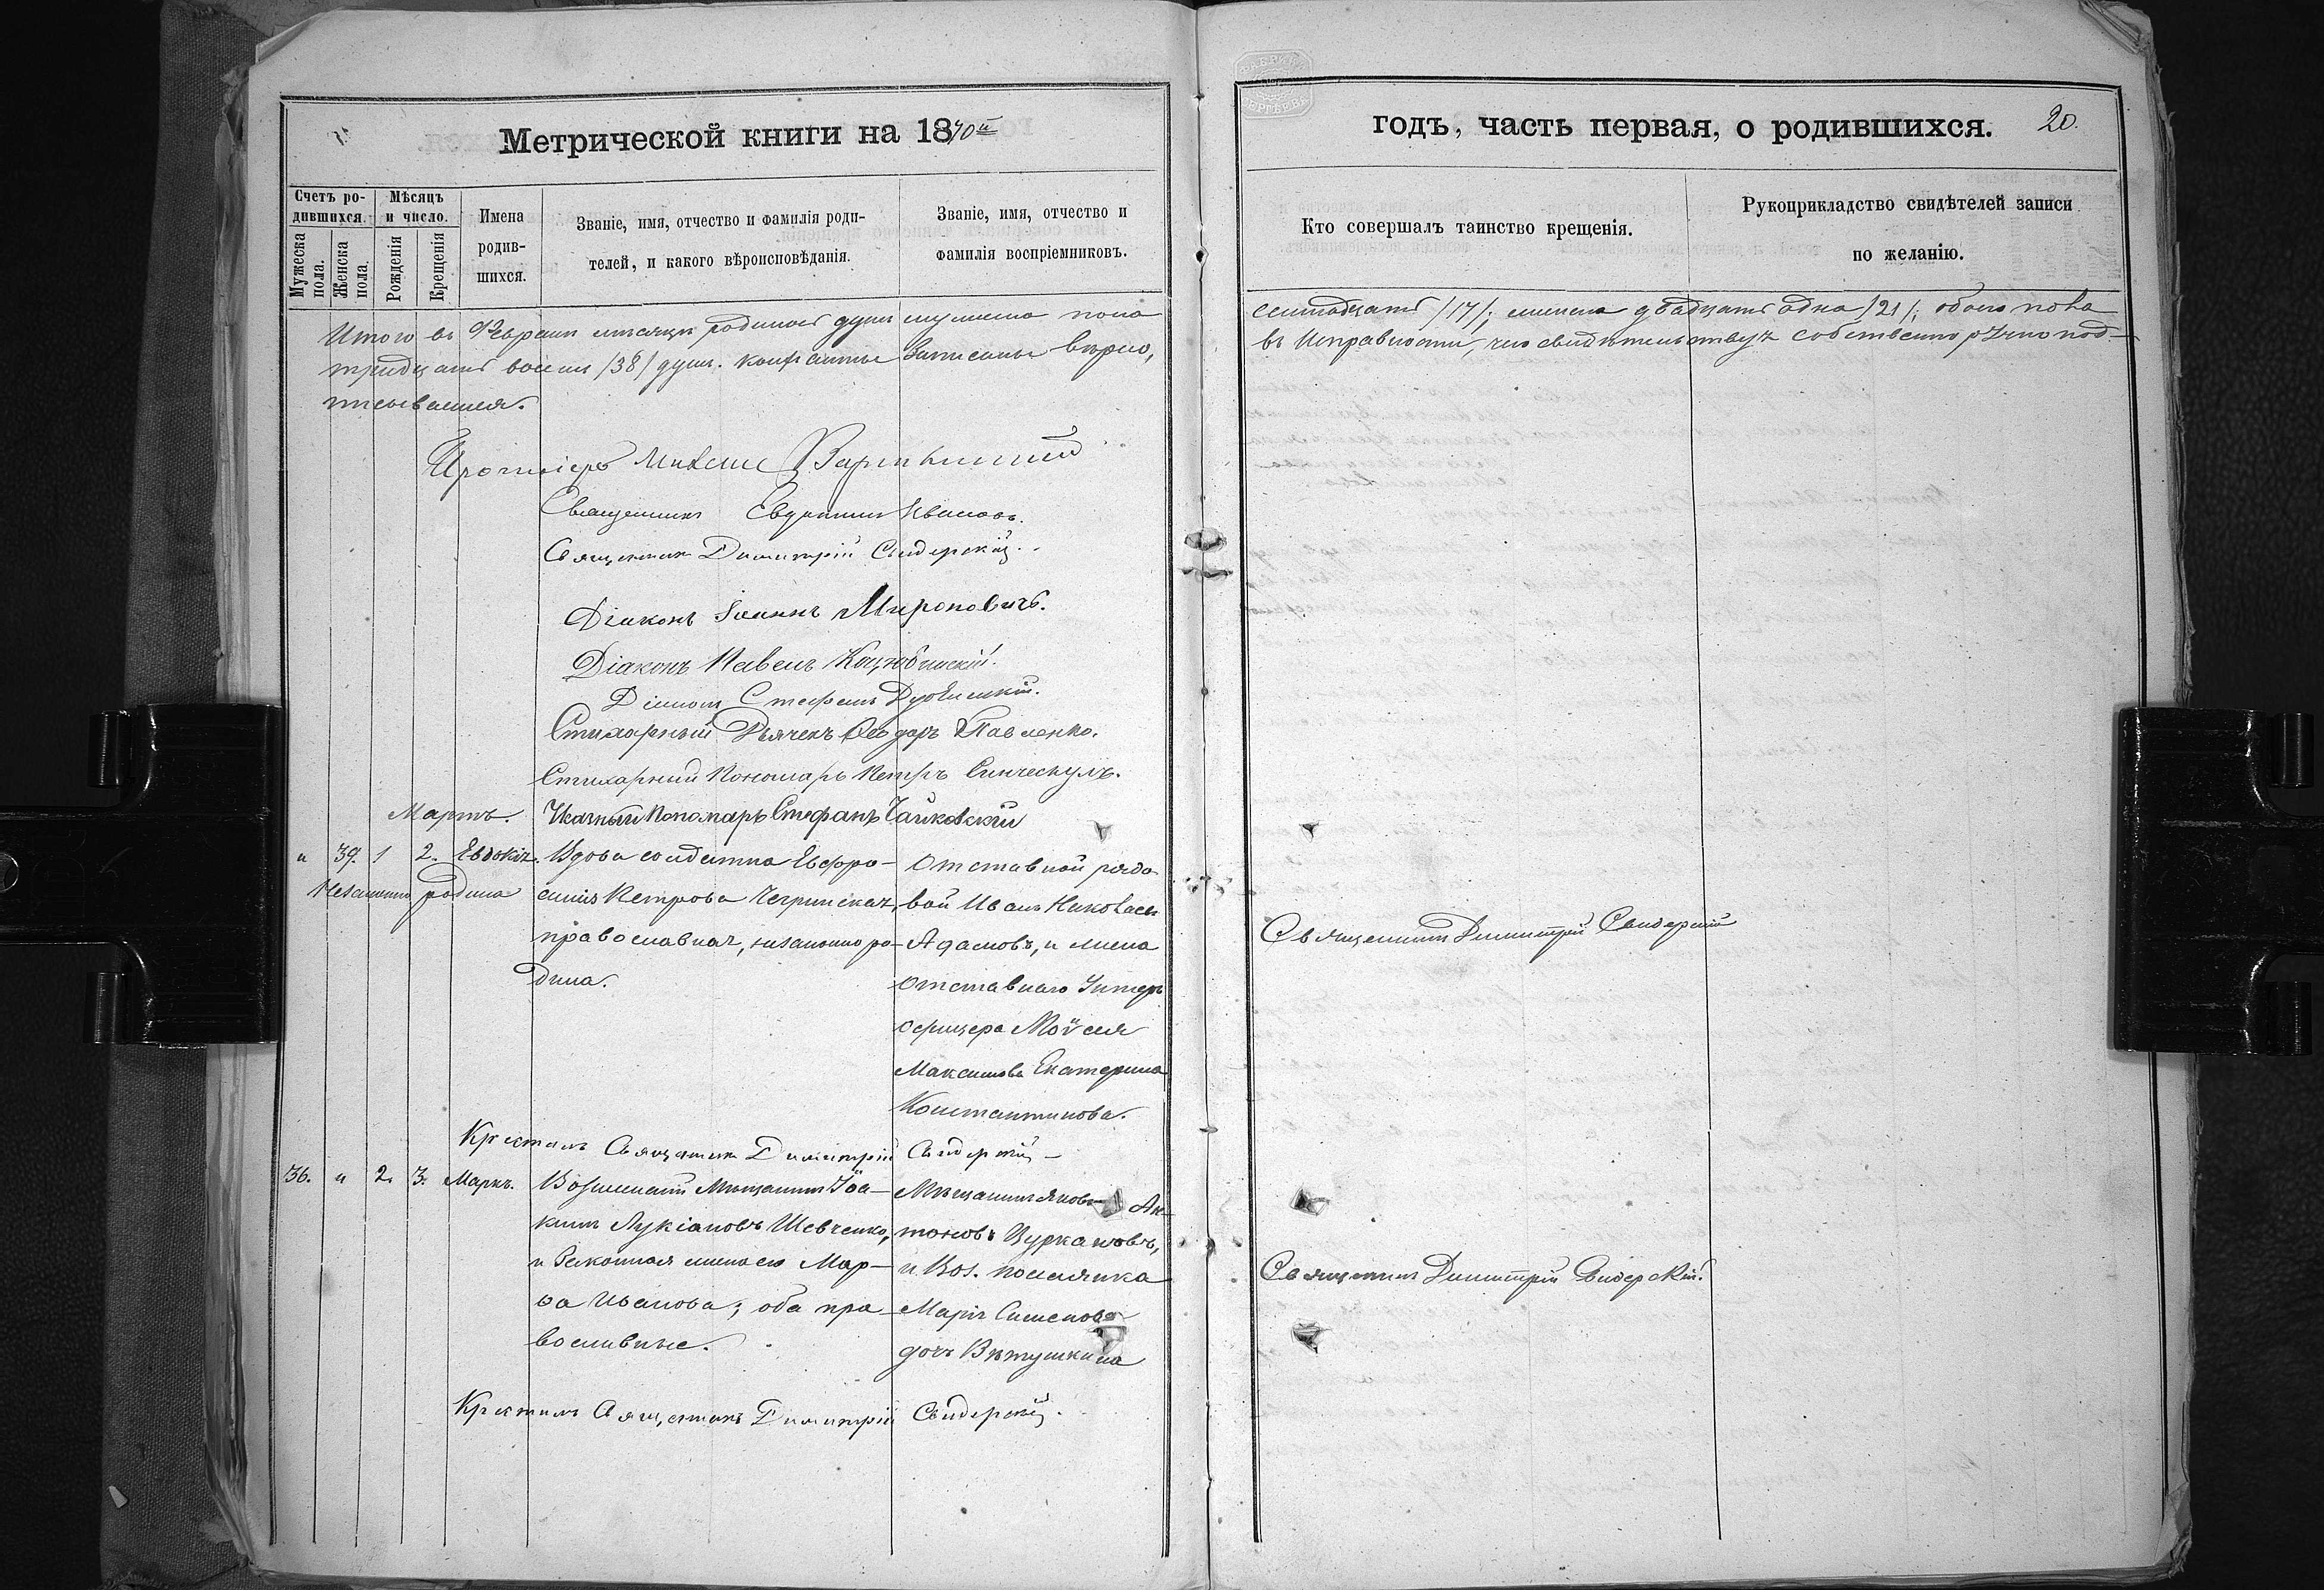 Метрической книги на 1870й
годъ, часть первая, о родившихся.
20.
Счетъ ро-
дившихся.
Мѣсяцъ
и число.
Мужеска
пола.
Женска
пола.
Рожденія
Крещенія
Имена
родив-
шихся.
Званіе, имя, отчество и фамилія роди-
телей, и какого вѣроисповѣданія.
Званіе, имя, отчество и
фамилія воспріемниковъ.
Кто совершалъ таинство крещенія.
Рукоприкладство свидѣтелей записи
по желанію.
Итого въ Февралѣ мѣсяцѣ родилось душъ мужеска пола
семнадцать /17/; женска двадцать одна /21/; обоего пола
тридцать восемь /38/ душъ. записаны вѣрно,
въ исправности, собственноручно под-
писываемся.
Протоіерей
Священникъ Евдокимъ Ивановъ.
Священникъ Димитрій Свидерскій.
Діаконъ Іоаннъ Мироновичъ.
Діаконъ Павелъ Коцюбинскій.
Діаконъ Стефанъ
Стихарный Дьячекъ Ѳеодоръ Павленко.
Стихарный Пономарь Петръ
Мартъ.
Указный Пономарь Стефанъ Чайковскій
" 39. 1 2. Евдокія.
Незаконно родила
Вдова солдатка Евфро-
синія Петрова
православная, незаконно ро-
дила.
Отставной рядо-
вой Иванъ Николаевъ
Адамовъ, и жена
отставнаго Унтеръ
офицера Моѵсея
Максимова Екатерина
Константинова.
Священникъ Димитрій Свидерскій
Крестилъ Священникъ Димитрій Свидерскій
36. " 2. 3. Маркъ.
Мѣщанинъ Іоа-
кимъ Лукіановъ Шевченко,
и законная жена его Мар-
ѳа Иванова; оба пра-
вославные.
Мѣщанинъ Яковъ Ан-
тоновъ Цуркановъ,
и Воз. поселянка
Марія Симеонова
дочь Вѣтушкина
Священникъ Димитрій Свидерскій.
Крестилъ Священникъ Димитрій Свидерскій.